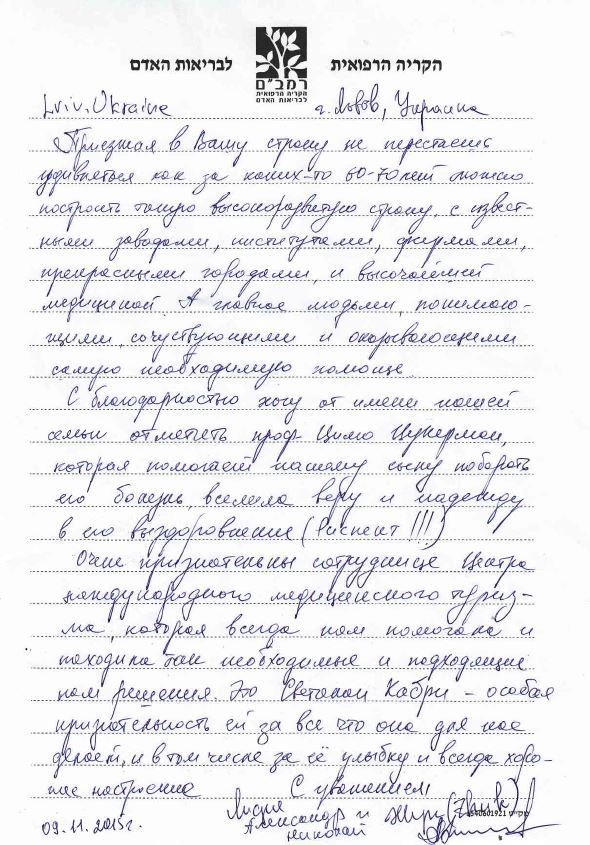 הקריה הרפואית לבריאות האדם
רמב"ם
הקריה הרפואית
לבריאות האדם
Lviv. Ukraine г. Львов, Украина
Приезжая в Вашу страну не перестаешь
удивляться как за каких-то 60-70 лет можно
построить такую высокоразвитую страну, с извест-
ными заводами, институтами, фирмами,
прекрасными городами, и высочайшей
медициной. А главное людьми, понимаю-
щими, сочуствующими и оказывающими
самую необходимую помощь.
С благодарностью хочу от имени нашей
семьи отметить проф. Цилю Цукерман,
которая помогает нашему сыну побороть
его болезнь, вселила веру и надежду
в его выздоровление (Риспект !!!)
Очень признательны сотруднице Центра
международного медицинского туриз-
ма, которая всегда нам помогала и
находила так необходимые и подходящие
нам решения. Это Светлана Кабри - особая
признательность ей за все что она для нас
делает, и в том числе за её улыбку и всегда хоро-
шее настроение С уважением
Лидия
Александр и
Николай
(Zhuk)
09.11.2015г.
4540601921